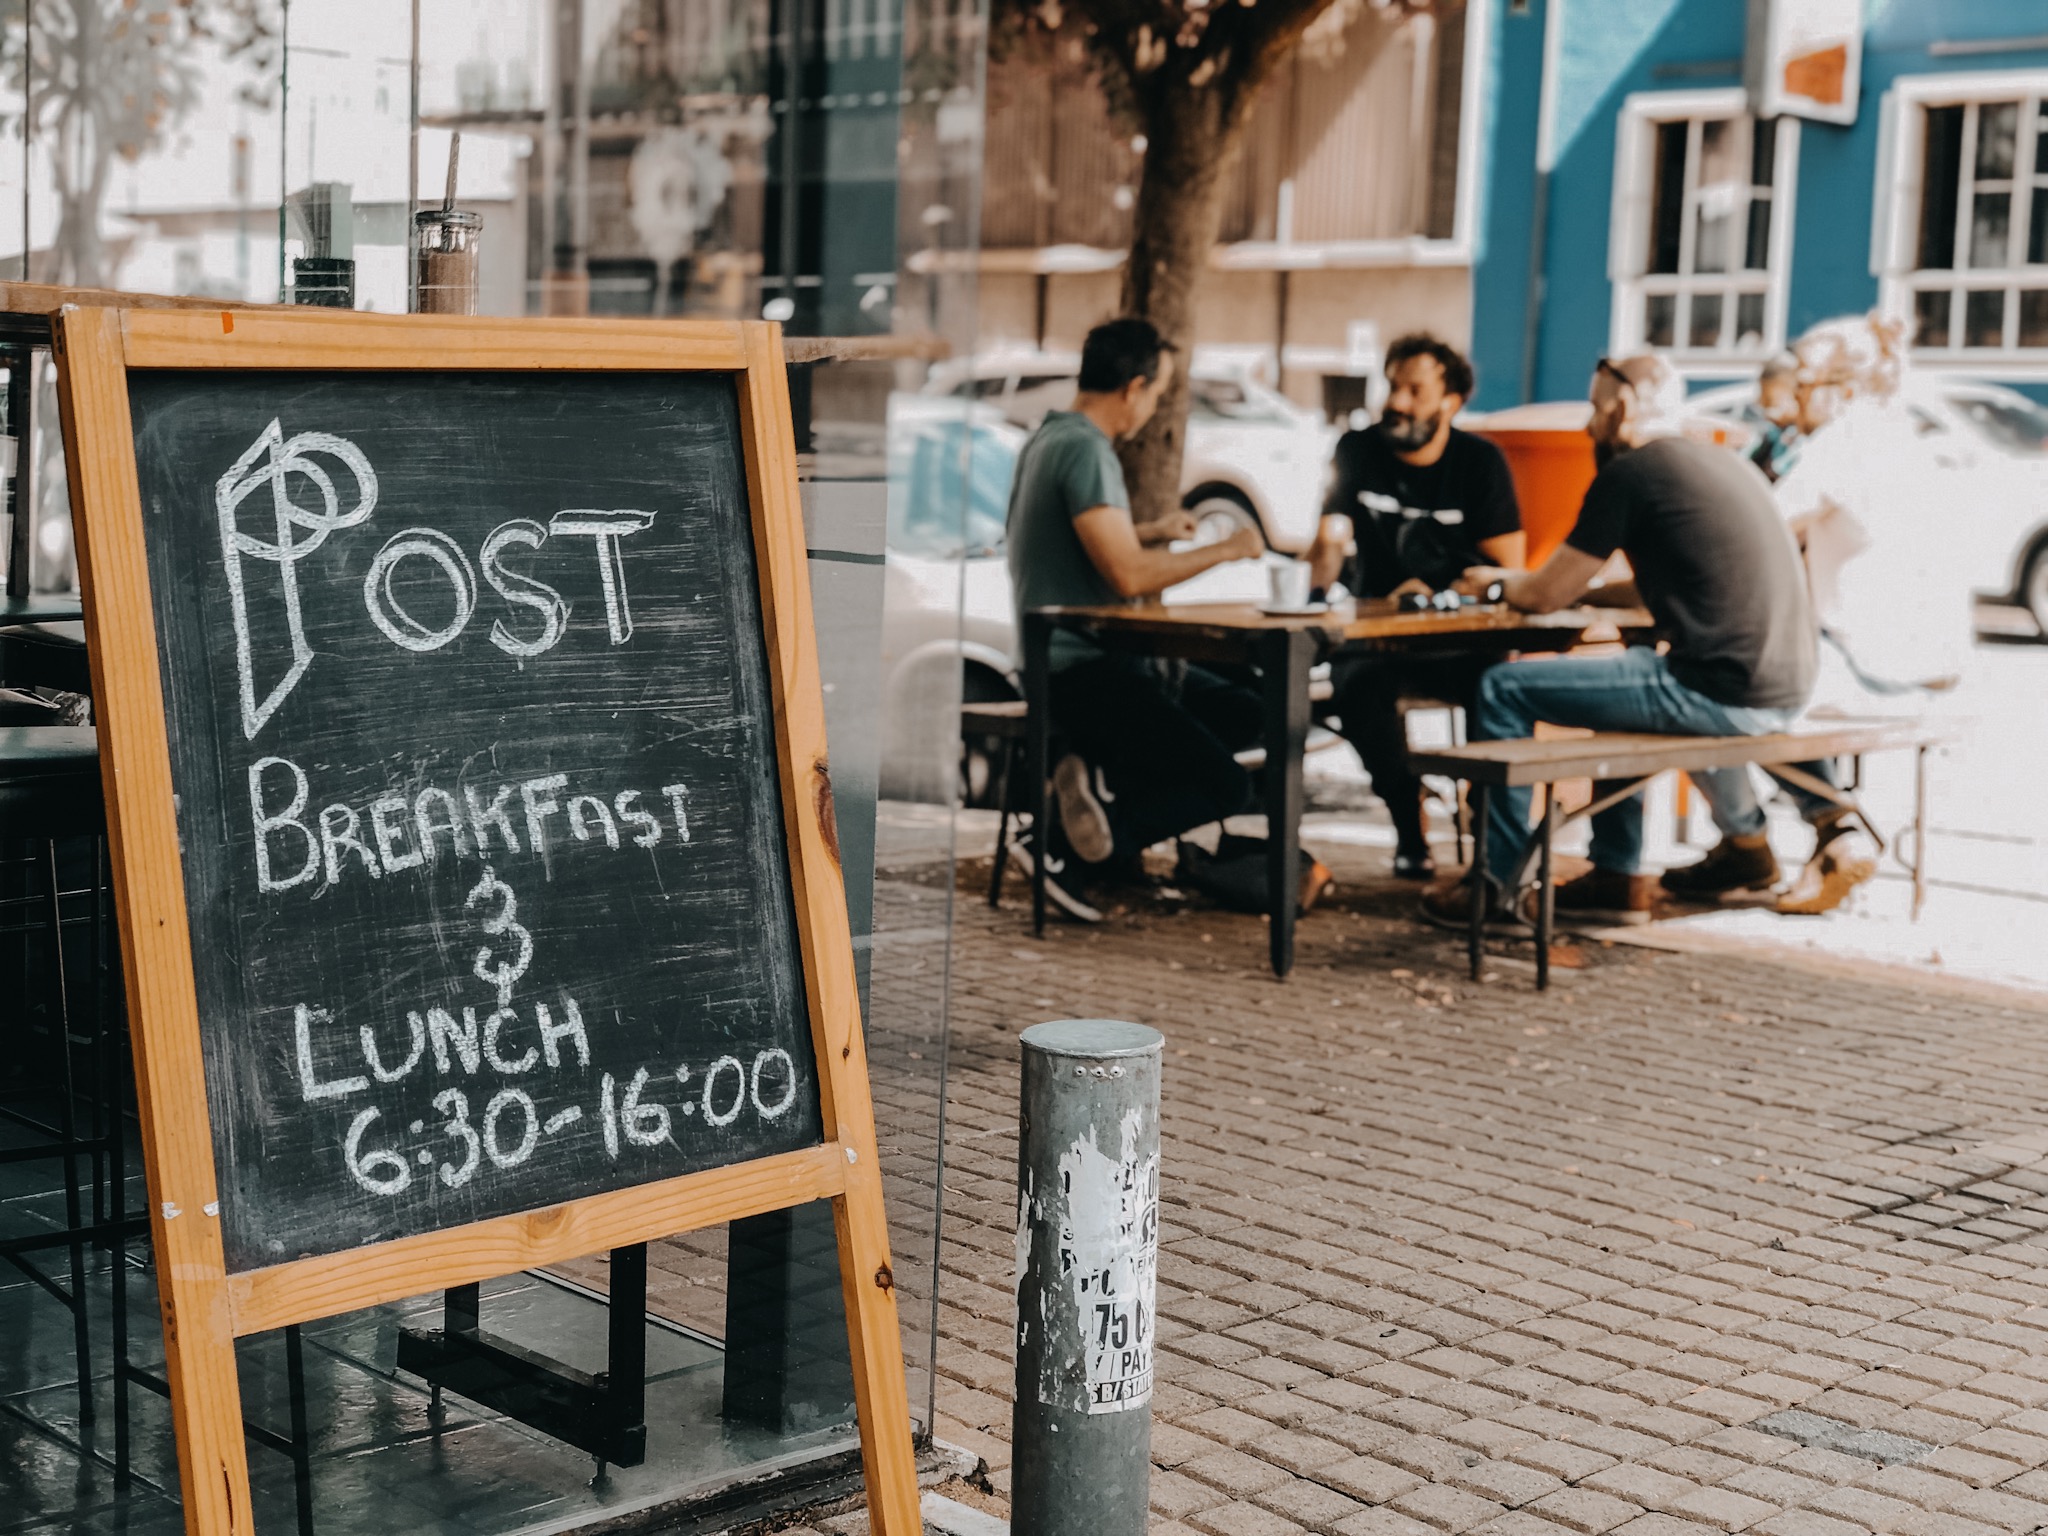 POST
BREAKFAST
&
LUNCH
6:30-16:00
75
/ PAY